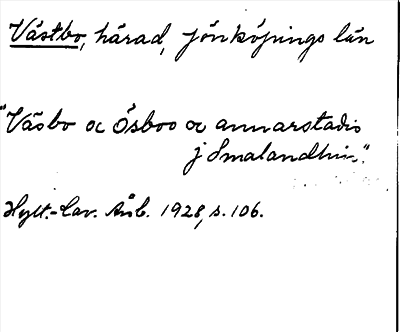 Västbo, härad, Jönköpings län
"Väsbo oc Ösboo oc annarstadis
j Smalandhin".
Hylt.-Cav. Årsb. 1928, s. 106.